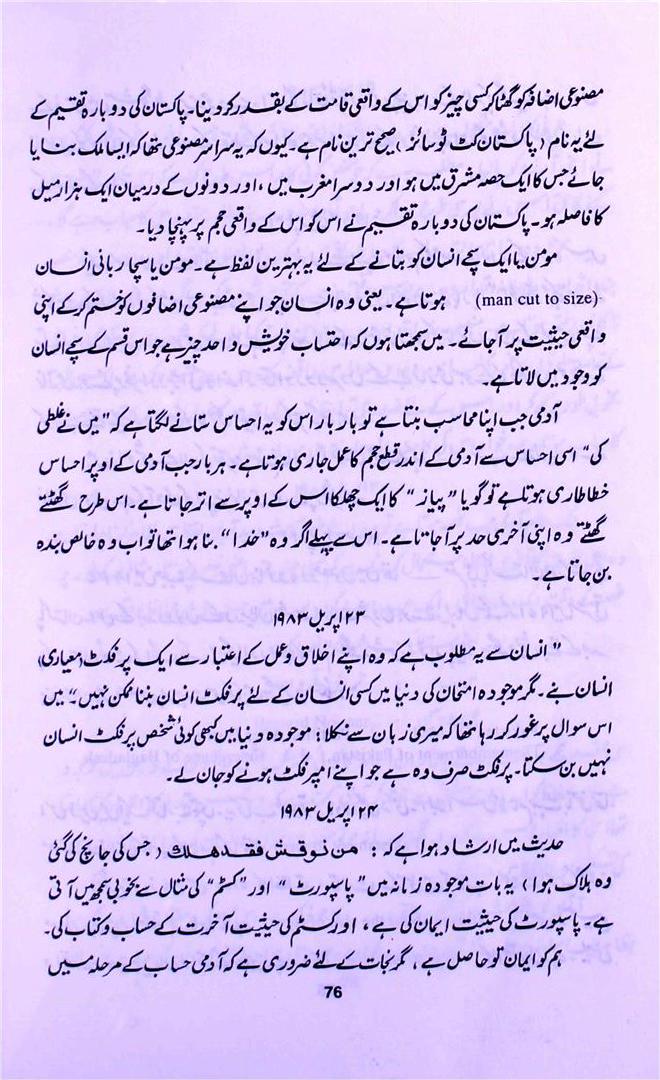 مصنوعی اضافہ کو گھٹا کر کسی چیز کو اس کے واقعی قامت کے بقدر کر دینا۔ پاکستان کی دوبارہ تقیم کے
لئے یہ نام (پاکستان کٹ ٹو سائز) صحیح ترین نام ہے۔ کیوں کہ یہ سراسر مصنوعی تھا کہ ایسا ملک بنایا
جائے جس کا ایک حصہ مشرق میں ہو اور دوسرا مغرب میں، اور دونوں کے درمیان ایک ہزار میل
کا فاصلہ ہو۔ پاکستان کی دوبارہ تقسیم نے اس کو اس کے واقعی حجم پر پہنچا دیا۔
مومن یا ایک سچے انسان کو بتانے کے لئے یہ بہترین لفظ ہے۔ مومن یا سچا ربانی انسان
(man cut to size) ہوتا ہے۔ یعنی وہ انسان جو اپنے مصنوعی اضافوں کو ختم کر کے اپنی
واقعی حیثیت پر آجائے۔ میں سمجھتا ہوں کہ احتساب خویش واحد چیز ہے جو اس قسم کے سچے انسان
کو وجود میں لاتا ہے۔
آدمی جب اپنا محاسب بنتا ہے تو بار بار اس کو یہ احساس ستانے لگتا ہے کہ "میں نے غلطی
کی" اسی احساس سے آدمی کے اندر قطع حجم کا عمل جاری ہوتا ہے۔ ہر بار جب آدمی کے اوپر احساس
خطا طاری ہوتا ہے تو گویا "پیاز" کا ایک چھلکا اس کے اوپر سے اتر جاتا ہے۔ اس طرح گھٹتے
گھٹتے وہ اپنی آخری حد پر آجاتا ہے۔ اس سے پہلے اگر وہ "خدا" بنا ہوا تھا تو اب وہ خالص بندہ
بن جاتا ہے۔
۲۳ اپریل ۱۹۸۳
"انسان سے یہ مطلوب ہے کہ وہ اپنے اخلاق و عمل کے اعتبار سے ایک پرفکٹ (معیاری)
انسان بنے۔ مگر موجودہ امتحان کی دنیا میں کسی انسان کے لئے پرفکٹ انسان بننا ممکن نہیں۔" میں
اس سوال پر غور کر رہا تھا کہ میری زبان سے نکلا: موجودہ دنیا میں کبھی کوئی شخص پرفکٹ انسان
نہیں بن سکتا۔ پرفکٹ صرف وہ ہے جو اپنے امپرفکٹ ہونے کو جان لے۔
۲۴ اپریل ۱۹۸۳
حدیث میں ارشاد ہوا ہے کہ: من نوقش فقد هلك (جس کی جانچ کی گئی
وہ ہلاک ہوا) یہ بات موجودہ زمانہ میں "پاسپورٹ" اور "کسٹم" کی مثال سے بخوبی سمجھ میں آتی
ہے۔ پاسپورٹ کی حیثیت ایمان کی ہے، اور کسٹم کی حیثیت آخرت کے حساب و کتاب کی۔
ہم کو ایمان تو حاصل ہے، مگر نجات کے لئے ضروری ہے کہ آدمی حساب کے مرحلہ میں
76